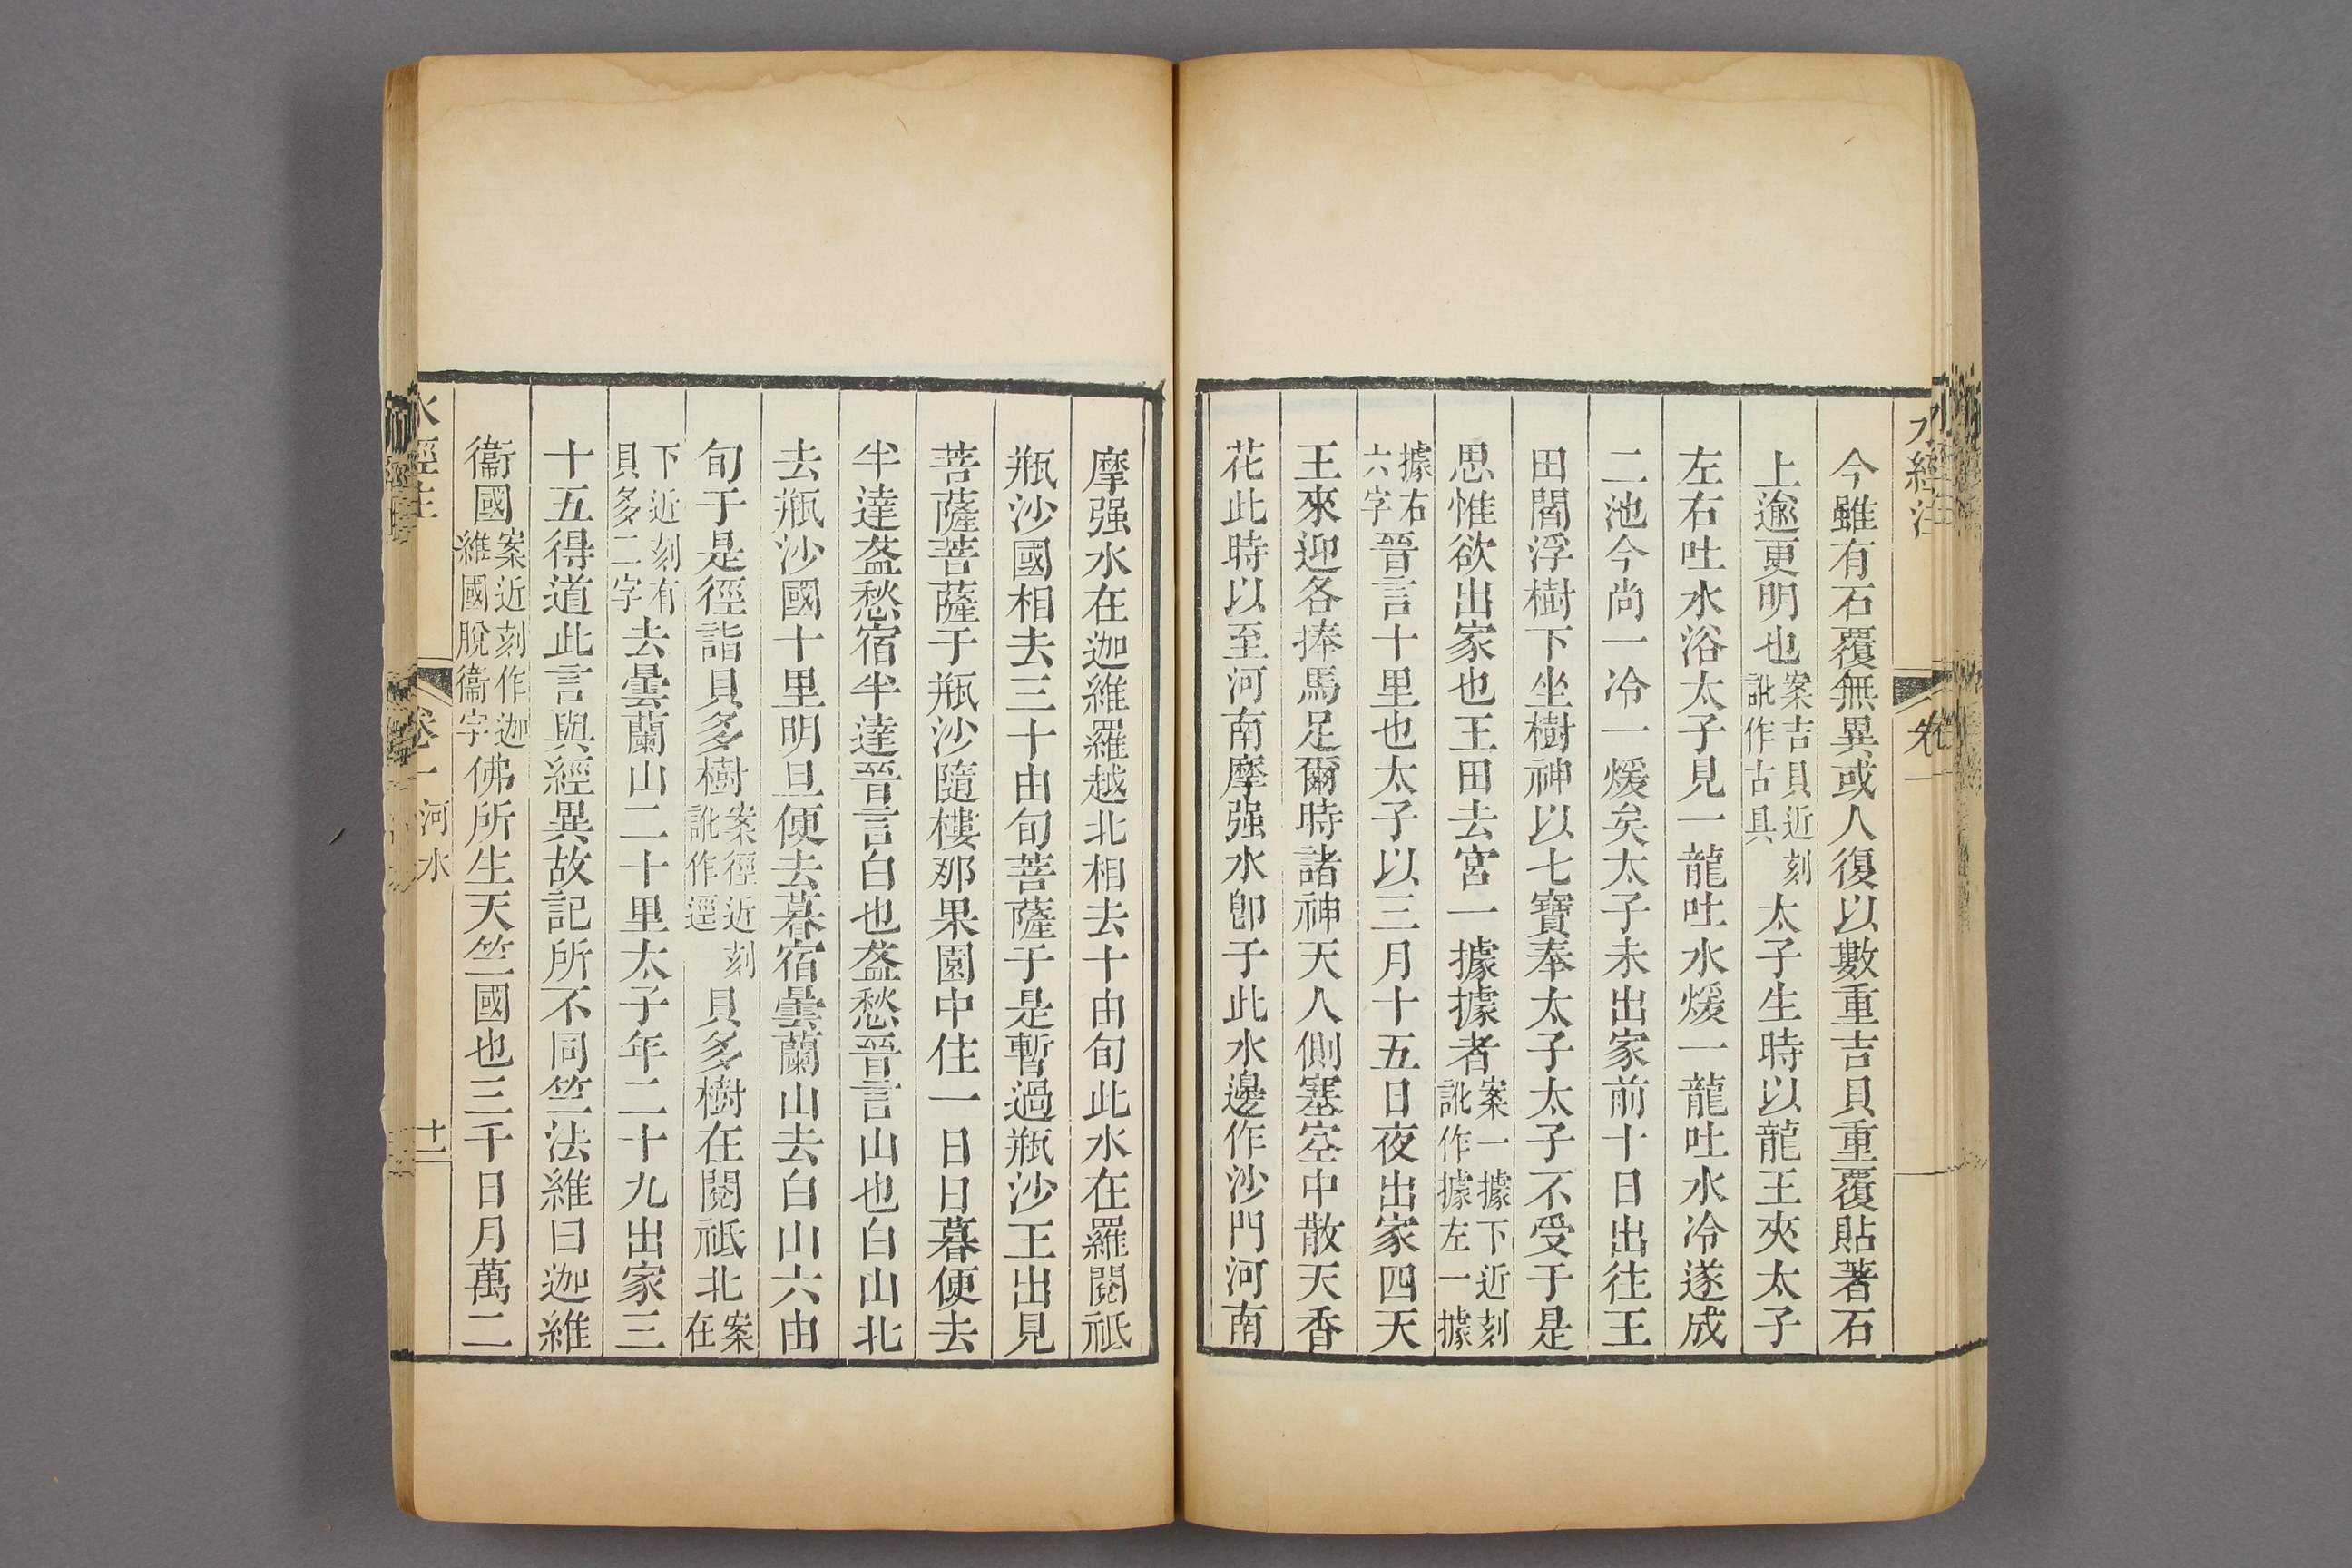 水經注
卷一
今雖有石覆無異或人復以數重吉貝重覆貼著石
上逾更明也案吉貝近刻訛作古具太子生時以龍王夾太子
左右吐水浴太子見一龍吐水煖一龍吐水冷遂成
二池今尚一冷一煖矣太子未出家前十日出往王
田閻浮樹下坐樹神以七寶奉太子太子不受于是
思惟欲出家也王田去宮一據據者案一據下近刻訛作據左一據
據右六字晉言十里也太子以三月十五日夜出家四天
王來迎各捧馬足爾時諸神天人側塞空中散天香
花此時以至河南摩强水卽于此水邊作沙門河南
摩强水在迦維羅越北相去十由旬此水在羅閱祗
瓶沙國相去三十由旬菩薩于是暫過瓶沙王出見
菩薩菩薩于瓶沙隨樓那果園中住一日日暮便去
半達盔愁宿半達晉言白也盔愁晉言山也白山北
去瓶沙國十里明旦便去暮宿曇蘭山去白山六由
旬于是徑詣貝多樹案徑近刻訛作逕貝多樹在閱祗北案在
下近刻有貝多二字去曇蘭山二十里太子年二十九出家三
十五得道此言與經異故記所不同竺法維曰迦維
衞國案近刻作迦維國脫衞字佛所生天竺國也三千日月萬二
水經注
卷一 河水
十二